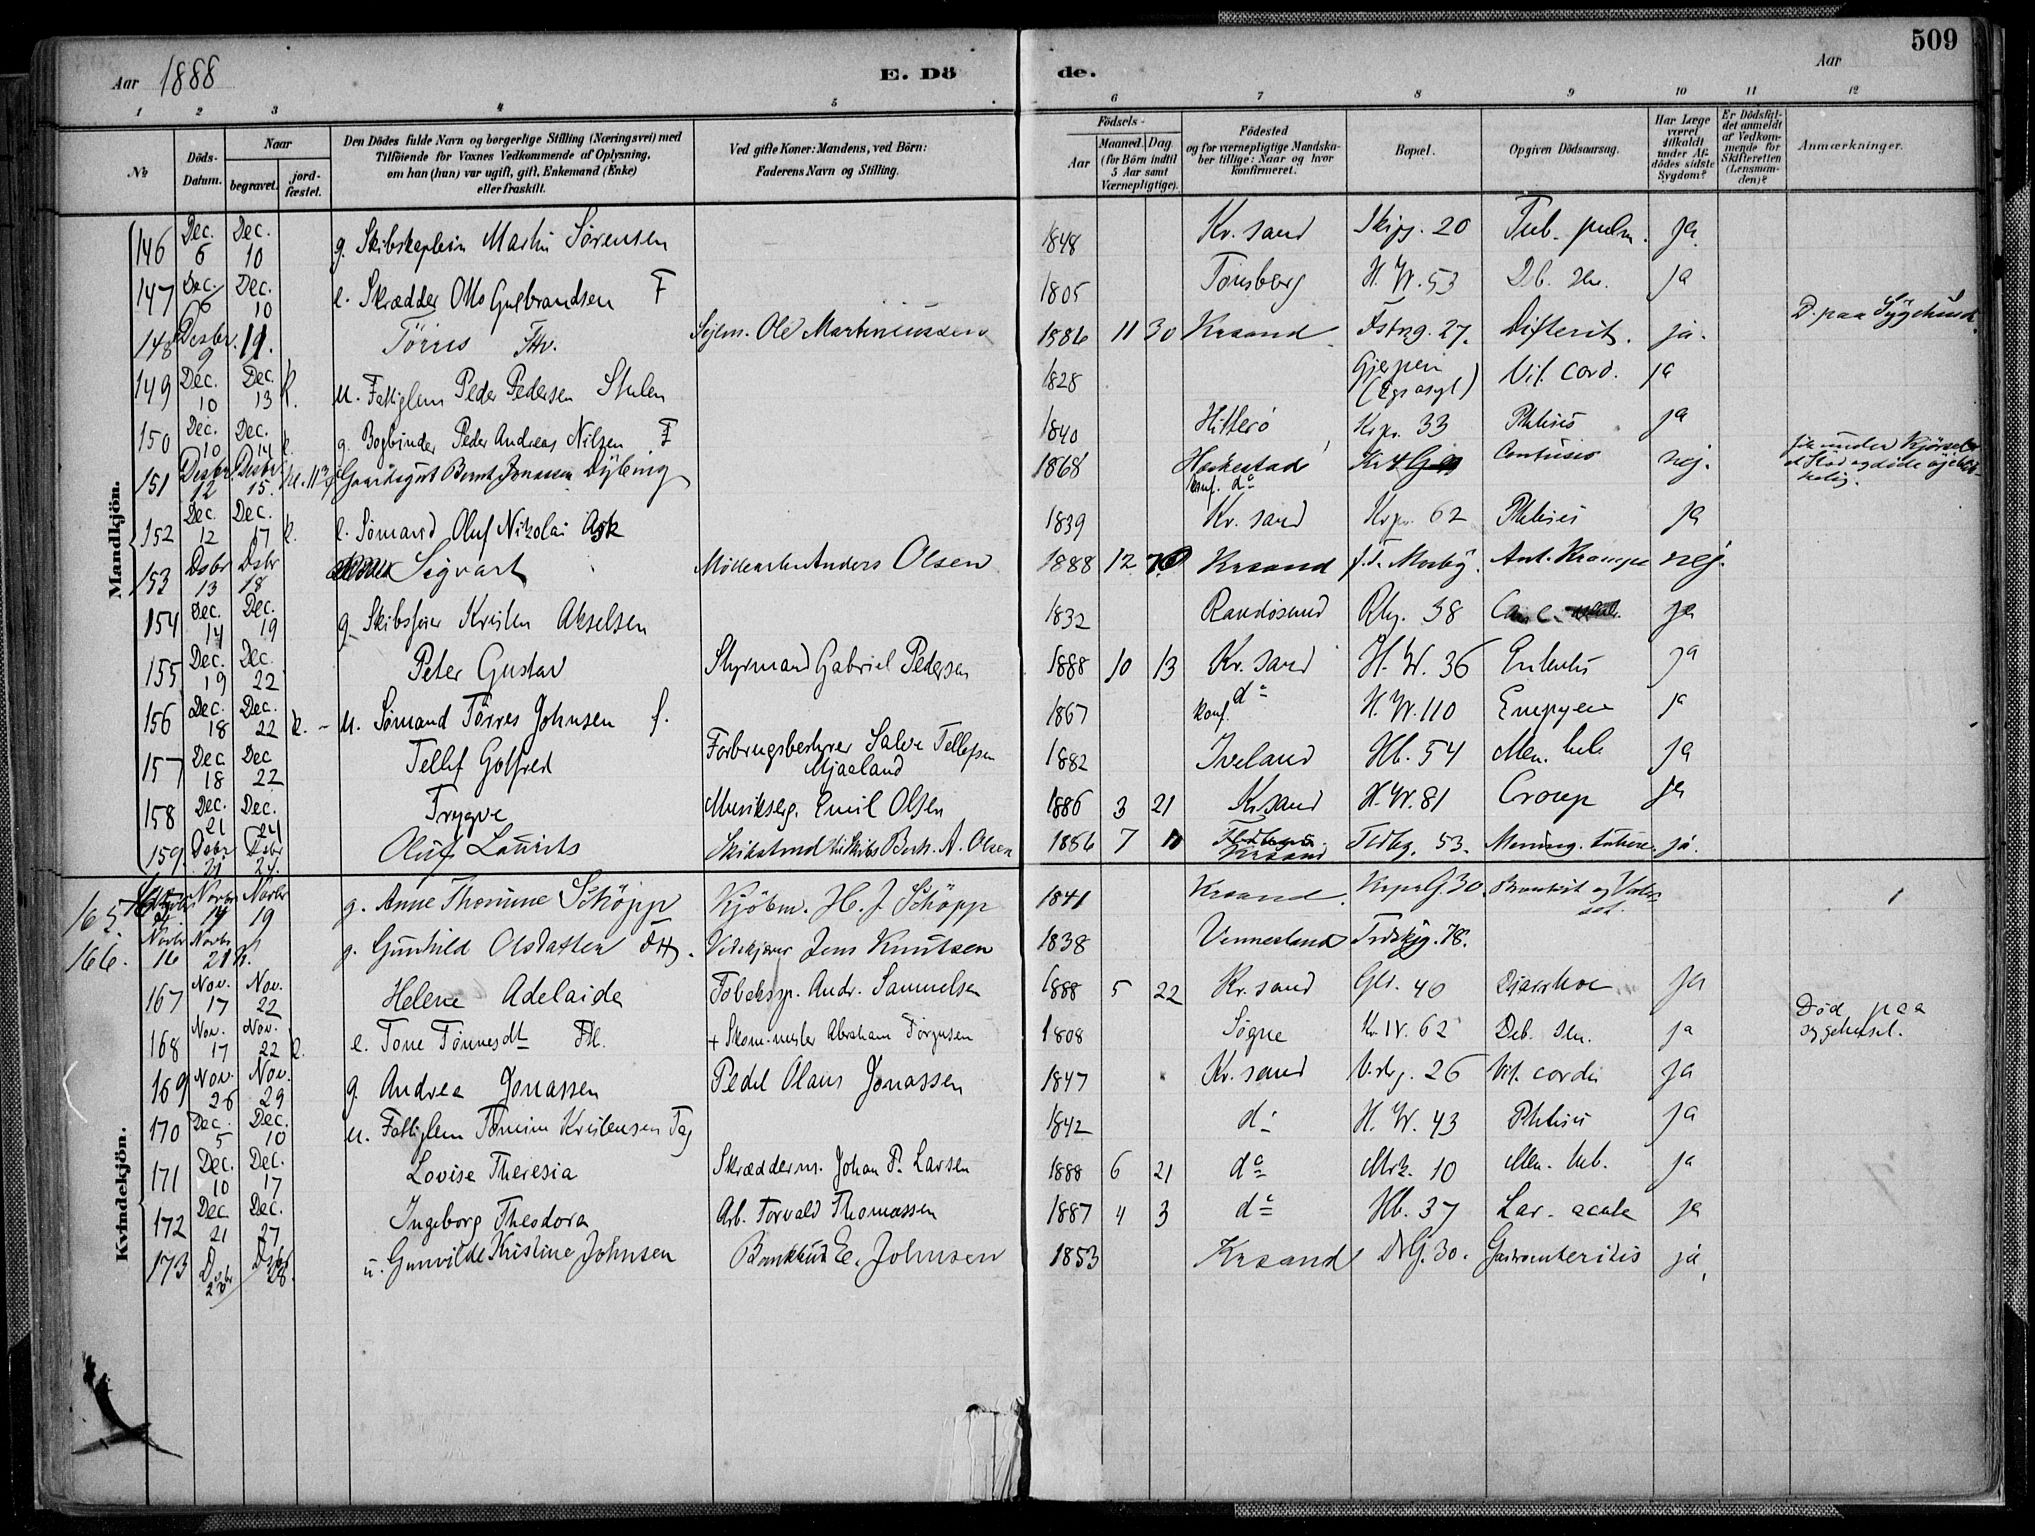 509
Aar 1888
E. Dö
de.
Aar
1 2 3 4 5 6 7 8 9 10 11 12
№
Döds-Datum.
Naar
begravet.
jord-fæstet.
Den Dödes fulde Navn og borgerlige Stilling (Næringsvei) med
Tilföiende for Voxnes Vedkommende af Oplysning,
om han (hun) var ugift, gift, Enkemand (Enke)
eller fraskilt.
Ved gifte Koner: Mandens, ved Börn:
Faderens Navn og Stilling.
Födsels-
Aar
Maaned. Dag.
(for Börn indtil
5 Aar samt
Værnepligtige).
Födested
og for værnepligtige Mandska-
ber tillige: Naar og hvor
konfirmeret.
Bopæl.
Opgiven Dödsaarsag.
Har Læge
været
tilkaldt
under Af-
dödes sidste
Sygdom?
Er Dödsfal-
det anmeldt
af Vedkom-
mende for
Skifteretten
(Lensman-
den)?
Anmærkninger.
Mandkjön.
146 Dec. 6 Dec. 10 g. Skibskaptein Martin Sörensen 1848 Kr.sand Skipg. 20 Tub. pulm. ja.
147 Dec. 6 Dec. 10 e. Skrædder Otto Gulbrandsen F 1805 Tönsberg H. W. 53 Db. sen. ja
148 Desbr. 9 11. Törres Ole Martiniussen 1886 11 30 Krsand Fstng. 27. Difterit. ja. D. paa Sygehus
149 Dec. 10 Dec. 13 k. u. Fattiglem Peder Pedersen 1828 Gjerpen Vit. cord. ja
150 Dec. 10 Dec. 14 g. Bogbinder Peder Andreas Nilsen F 1840 Hitterö Krpr. 33 Phthisis ja
151 Desbr. 12 Desbr. 15. Gaardsgut Bernt Jonassen Dybing 1868 konf. do Contusio nej.
152 Dec. 12 Dec. 17 e. Sömand Oluf Nikolai Ask 1839 Kr.sand Krpr. 62 Phthisis ja
153 Dsbr 13 Dsbr 18 Sigvart Anders Olsen 1888 12 Krsand nej.
154 Dec. 14 Dec. 19 g. Skibsförer Kristen Akselsen 1832 Randösund Rhg. 38 ja
155 Dec. 19 Dec. 22 Peter Gustav Styrmand Gabriel Pedersen 1888 10 13 Kr.sand H. W. 36 Enteritis ja
156 Dec. 18 Dec. 22 k. u. Sömand Törres Johnsen f. 1867 konf. do H. W. 110 Empyem ja
157 Dec 18 Dec 22 Tellef Gotfred Forbrugsbestyrer Salve Tellefsen
Mjaaland 1882 Iveland Hb. 54 Men. tub. ja
158 Dec. 21 Dec. 24 Trygve Musikserg. Emil Olsen 1886 3 21 Kr.sand H. W. 81 Croup ja
159. Dsbr 21 Dsbr 24. Oluf Laurits A. Olsen 1886 7 Krsand 53. Mening. tuberc. ja.
Kvindekjön.
165. Novbr 14 Novbr 19 g. Anne Thomine Schöpp Kjöbm. H. J. Schöpp 1841 Krsand. Krpr G. 30
166. Novbr 16 Novbr 21 g. Gunhild Olsdatter Jens Knutsen 1838 Vennesland 78.
167 Nov. 17 Nov. 22 Helene Adelaide Tobakssp. Andr. Samuelsen 1888 5 22 Kr.sand Glr. 40 Diarrhoe ja
168 Nov. 17 Nov. 22 k. e. Tone Tönnesdt + Skom.mester Abraham Törgersen 1808 Sögne Kr. W. 62 Deb. sen. ja Död paa
sygehuset.
169 Nov. 26 Nov. 29 g. Andrea Jonassen Pedel Olaus Jonassen 1847 Kr.sand V.strg. 26 Vit. cordis ja
170 Dec. 5 Dec. 10 u. Fattiglem Tomine Kristensen 1842 do H. W. 43 Phthisis ja
171 Dec. 10 Dec. 17 Lovise Theresia Skrædderm. Johan P. Larsen 1888 6 21 do Mrk. 10 Men. tub. ja
172 Dec. 21 Dec. 27 Ingeborg Theodora Arb. Torvald Thomassen 1887 4 3 do Hb. 37 Lar. acuta ja
173 Dsbr 23 Dsbr 28. u. Gunvilde Kristine Johnsen E. Johnsen 1853 Krsand Dr G. 30. Gastroenteritis ja